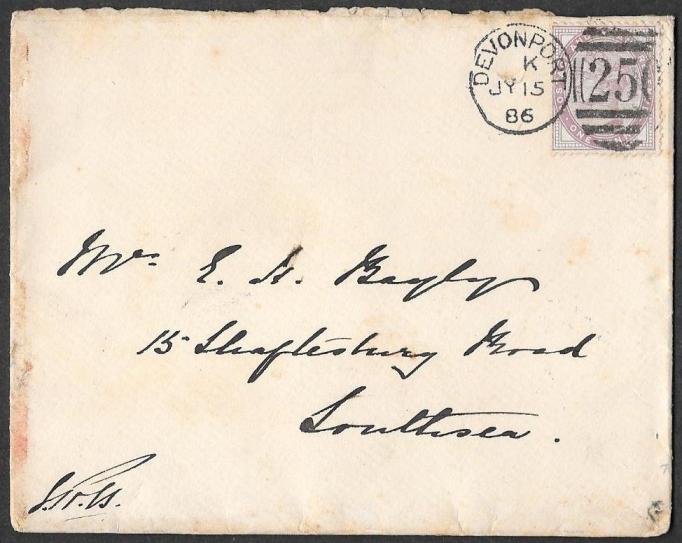 DEVONPORT
K
JY 15
86
25
Mrs. E. H. Bagly
15 Shaftesbury Road
Southsea.